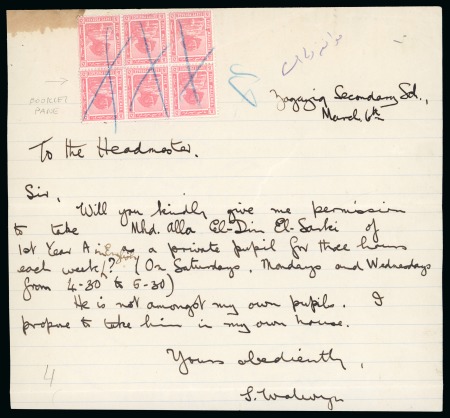 BOOKLET
PANE
Zagazig Secondary Sch.,
March 6th
To the Headmaster.
Sir,
Will you kindly give me permission
to take Mhd. Alla El-Din El-Sarki of
1st Year A in English as a private pupil for three hours
each week? (On Saturdays, Mondays and Wednesdays
from 4-30 to 5-30)
He is not amongst my own pupils. I
propose to take him in my own house.
Yours obediently,
S. Walwyn
4